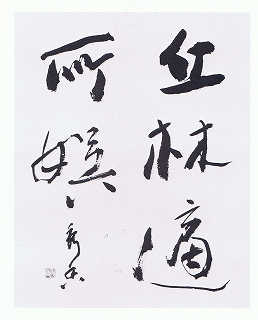 丘林適
所娯